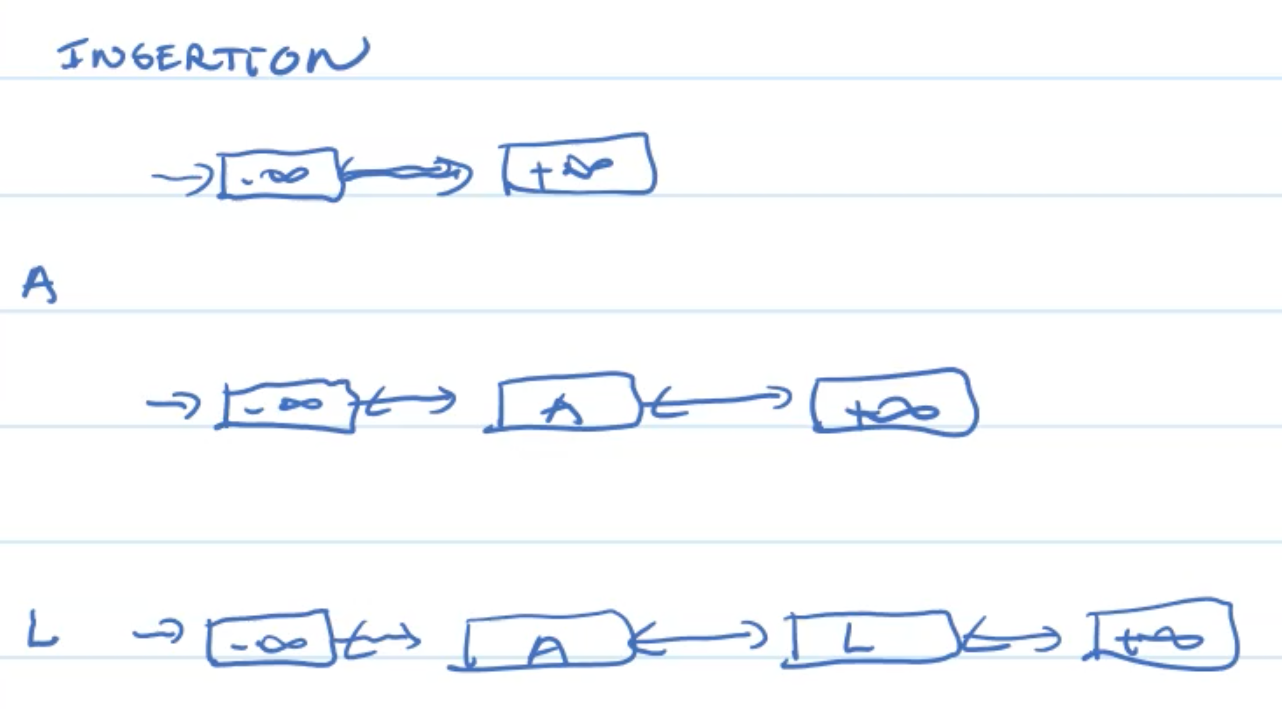 INSERTION
-∞ +∞
A
-∞ A +∞
L -∞ A L +∞